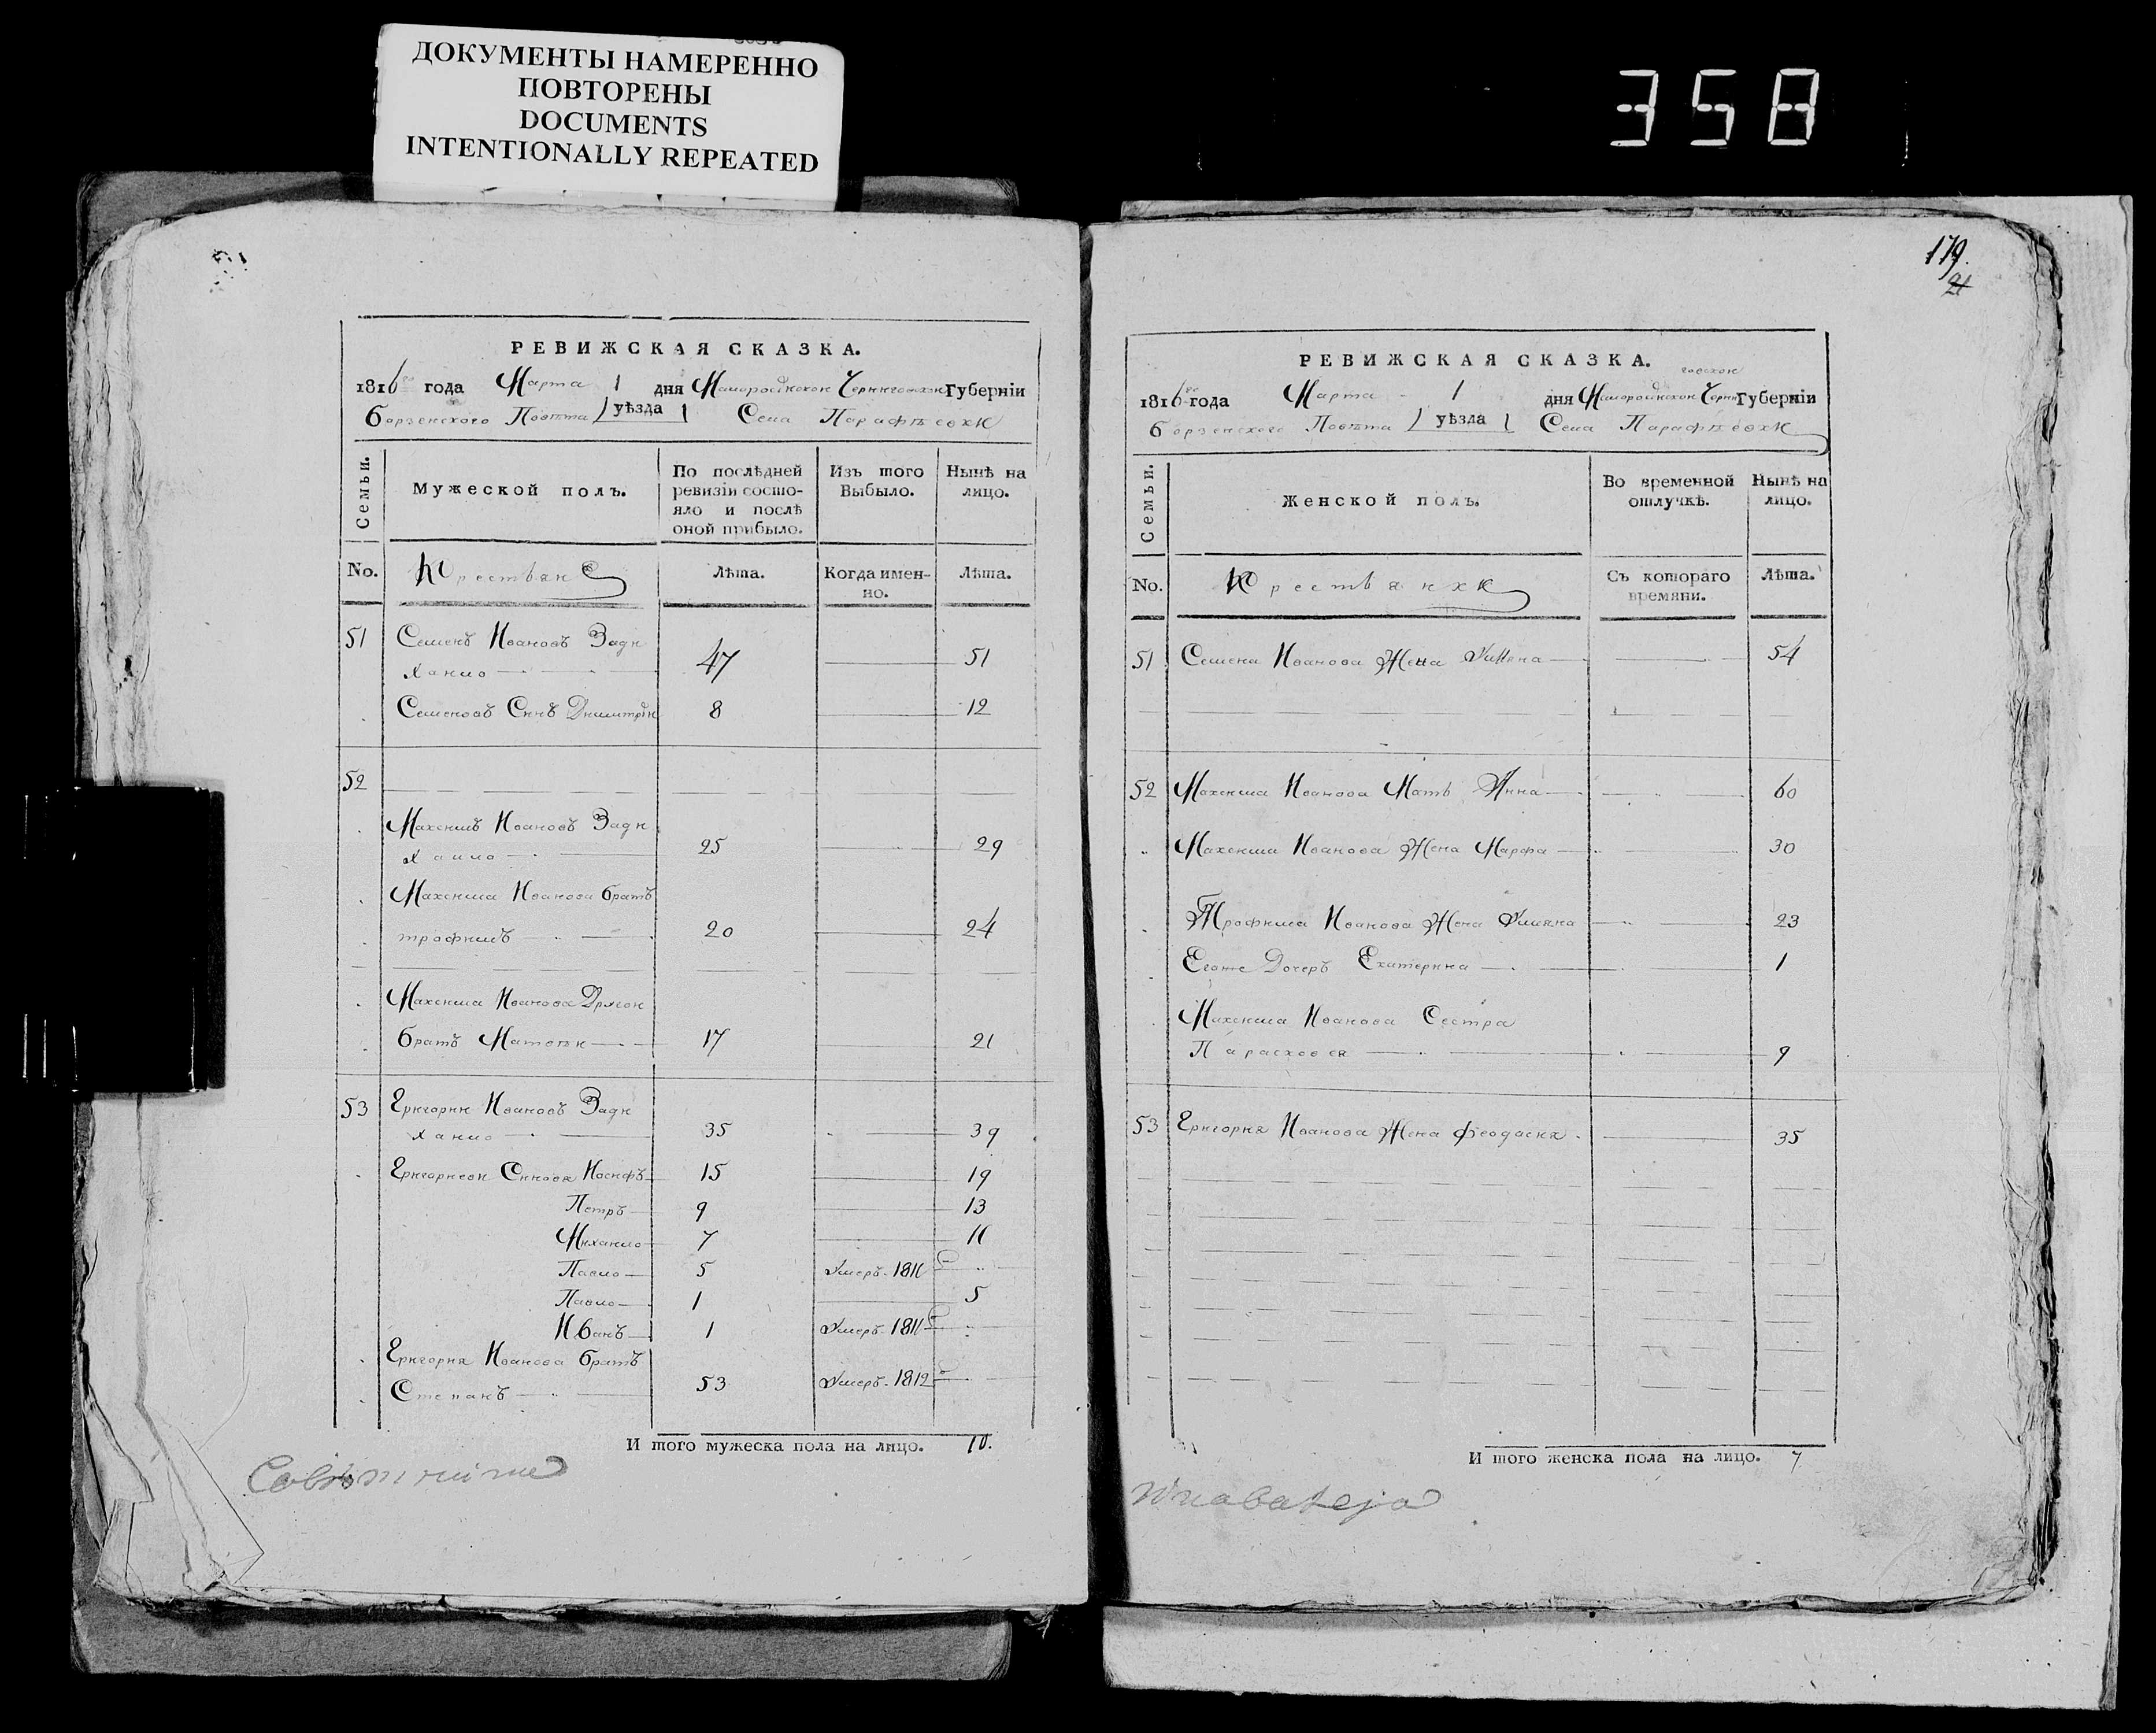 ДОКУМЕНТЫ НАМЕРЕННО
ПОВТОРЕНЫ
DOCUMENTS
INTENTIONALLY REPEATED
358
РЕВИЖСКАЯ СКАЗКА.
1816го года Марта 1 дня Малоросійской Черниговской Губерніи
Борзенского Повѣта уѣзда Села Парафѣевки
Семьи.
Мужеской полъ.
По послѣдней
ревизіи состо-
яло и послѣ
оной прибыло.
Изъ того
Выбыло.
Нынѣ на
лицо.
No.
Крестьяне
Лѣта.
Когда имен-
но.
Лѣта.
51 Семенъ Ивановъ Зади
хайло 47 51
Семеновъ Синъ Димитрій 8 12
52
Максимъ Ивановъ Зади
хайло 25 29
Максима Иванова братъ
трофимъ 20 24
Максима Иванова Другой
братъ Матвѣй 17 21
53 Григорий Ивановъ Зади
хайло 35 39
Григориеви Синовя Иосифъ 15 19
Петръ 9 13
Михайло 7 11
Павло 5 Умеръ 1811
Павло 1 5
Иванъ 1 Умеръ 1811
Григория Иванова братъ
Степанъ 53 Умеръ 1812
И того мужеска пола на лицо. 10.
179.
21
РЕВИЖСКАЯ СКАЗКА.
говской
1816го года Марта 1 дня Малоросійской Черни Губерніи
Борзенского Повѣта уѣзда Села Парафѣевки
Семьи.
Женской полъ.
Во временной
отлучкѣ.
Нынѣ на
лицо.
No.
Крестьянки
Съ котораго
времяни.
Лѣта.
51 Семена Иванова Жена Улияна 54
52 Максима Иванова Мать Анна 60
Максима Иванова Жена Марфа 30
Трофима Иванова Жена Улияна 23
Егоже Дочерь Екатерина 1
Максима Иванова Сестра
Парасковея 9
53 Григория Иванова Жена Феодосия 35
И того женска пола на лицо. 7